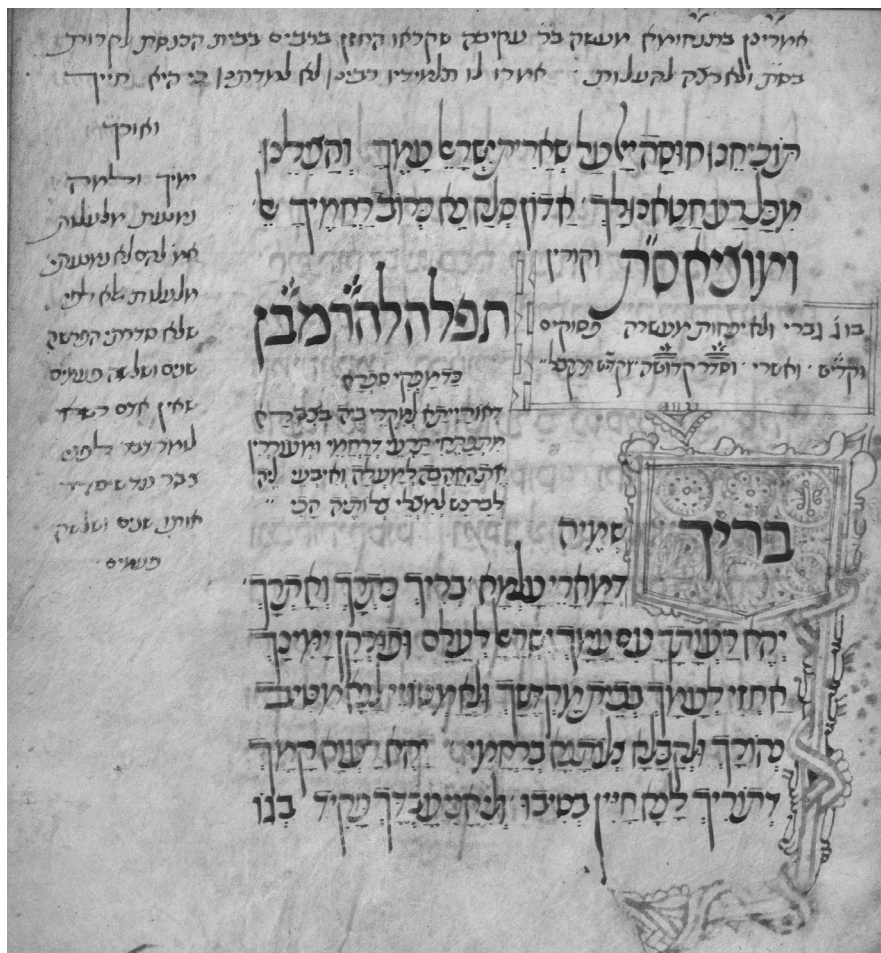 אמרינן בתנחומא מעשה בר' עקיבה שקראו החזן ברבים בבית הכנסת לקרות
בס"ת ולא רצה לעלות אמרו לו תלמידיו רבינו לא למדתנו כי היא חייך
ואורך
ימיך ולמה
נמנעת מלעלות
אמ' להם לא נמנעתי
מלעלות אלא לפי
שלא סדרתי הפרשה
שנים ושלשה פעמים
שאין אדם רשאי
לומר דבר לפני
אותו שנים ושלשה
פעמים
חוסה יי על שארית ישרא' עמך
מכל רע חטאנו לך אדון סלח נא כרוב רחמיך
ומוציאין ס"ת וקורין
בו ג' גברי ולא פחות מעשרה פסוקים
וקדיש ואשרי וסדר קדושה וקדיש תתקבל
תפלה להרמב"ן
כד מפקי ספרא
דאוריתא למקרי ביה בצבורא
מתפתחי תרעי דרחמי ומעוררין
למעלה ואיבעי ליה
לבר נש למימר הכי
בריך שמיה
דמארי עלמא בריך כתרך ואתרך
יהא רעותך עם עמך ישרא' לעלם ופורקן ימינך
אחזי לעמך בבית מקדשך ולאמטויי לנא מטיב
נהורך ולקבלא צלותנא ברחמין יהא רעוא קמך
דתוריך לנא חיין בטיבו עבדך פקיד בגו